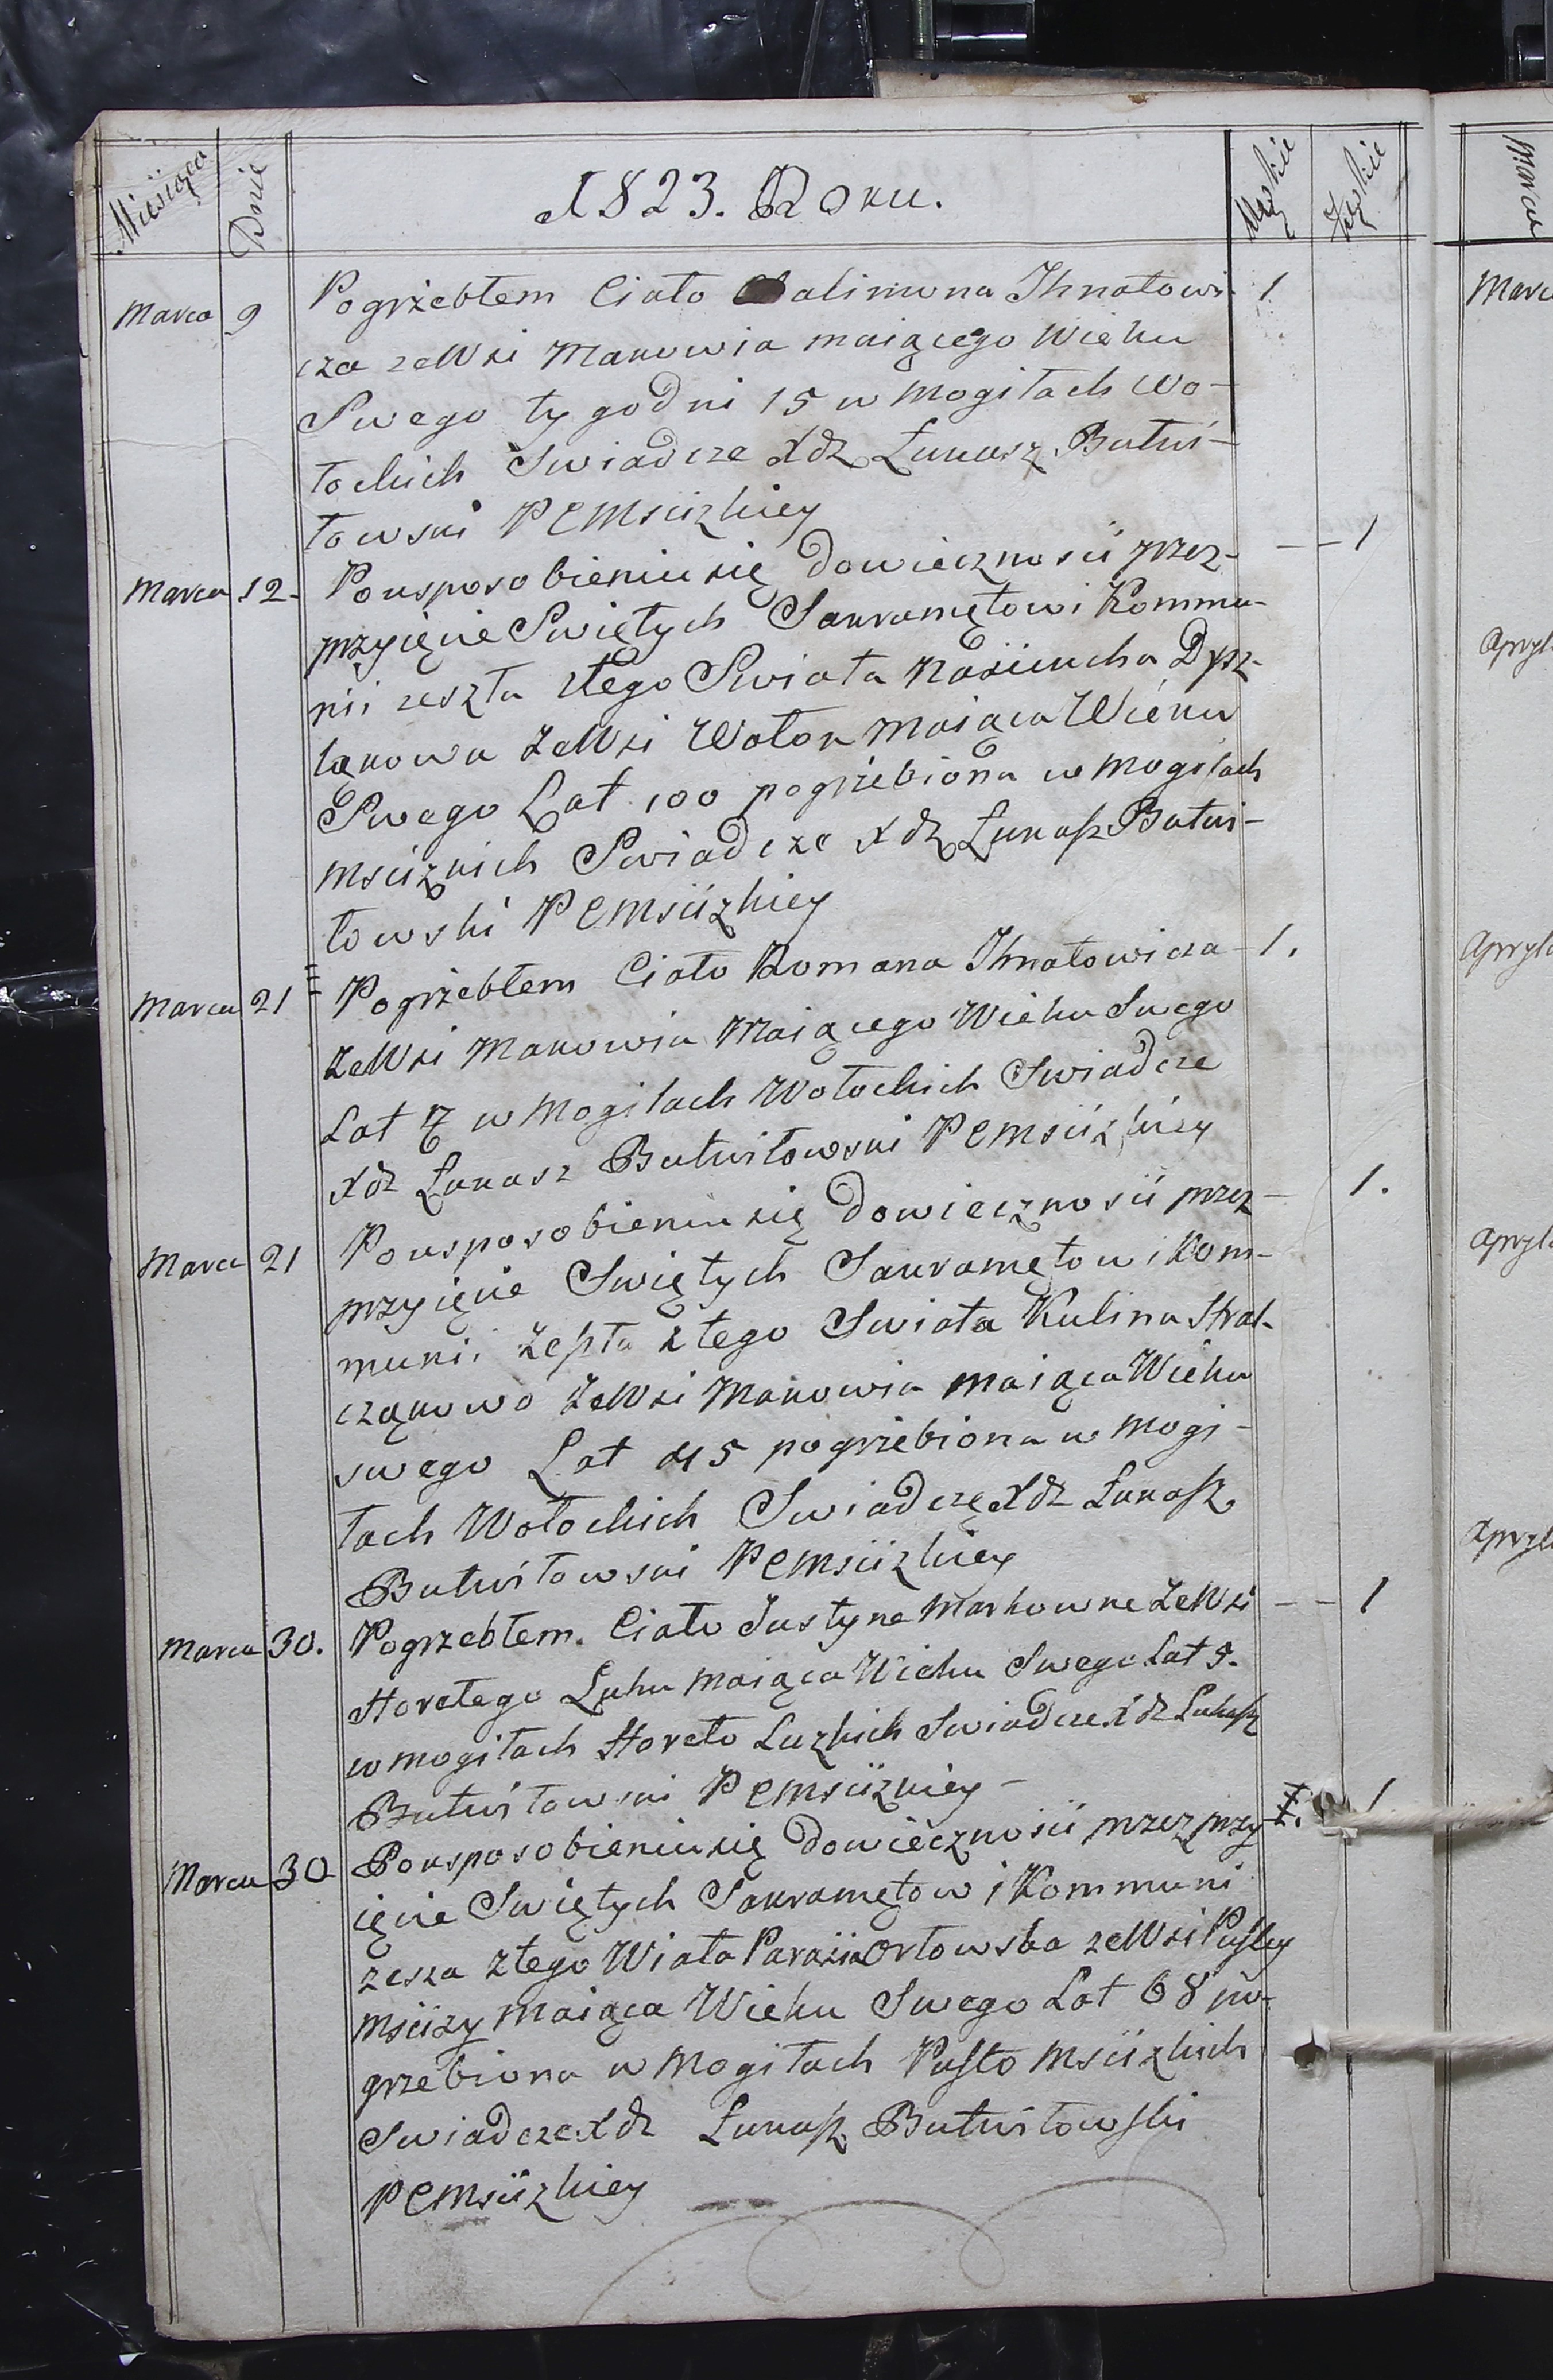 Miesiąca Dnie 1823. Roku. Męzkie Zęzkie
Marca 9 Pogrzebłem Ciało Calimona Ihnatowi- 1
cza zeWsi Makowia maiącego Wieku
Swego tygodni 15 w Mogiłach Wo-
łockich Swiadcze Xdz Łukasz Butwi-
łowski P C Msciizkiey
Marca 12. Pousposobieniusię dowiecznoscii przez- - - 1
przyięcie Swiętych Sakramętow i Kommu-
nii zeszła ztego Swiata Nasciucha Dysz-
ląkowa ZeWsi Wołok Maiąca Wieku
Swego Lat 100 pogrzebiona w Mogiłach
Msciizkich Swiadcze Xdz Łukasz Butwi-
łowski P C Msciizkiey
Marca 21 Pogrzebłem Ciało Romana Ihnatowicza - 1.
ZeWsi Makowia Maiącego Wieku Swego
Lat 7 w Mogiłach Wołockich Swiadcze
Xdz Łukasz Butwiłowski P C Msciizkiey
Marca 21 Pousposobieniusię dowiecznoscii przez - 1.
przyięcie Swiętych Sakramętow i Kom-
munii Zeszła ztego Swiata Kulina Stral-
cząkowa ZeWsi Makowia maiąca Wieku
swego Lat 45 pogrzebiona w Mogi-
łach Wołockich Swiadczę Xdz Łukasz
Butwiłowski P C Msciizkiey
Marca 30. Pogrzebłem Ciało Justyne Markowne ZeWsi - - 1
Horełego Luhu maiąca Wieku Swego Lat 5.
w mogiłach Horeło Luzkich Swiadcze Xdz Łukasz
Butwiłowski P C Msciizkiey -
Marca 30 Pousposobieniusię dowiecznoscii przez przy 1
ięcie Swiętych Sakramętow i Kommuni
zesza ztego Wiata Parasia Orłowska zeWsi Pustey
Msciizy maiąca Wieku Swego Lat 68 po-
grzebiona w Mogiłach Pusto Msciizkich
Swiadcze Xdz Łukasz Butwiłowski
P C Msciizkiey